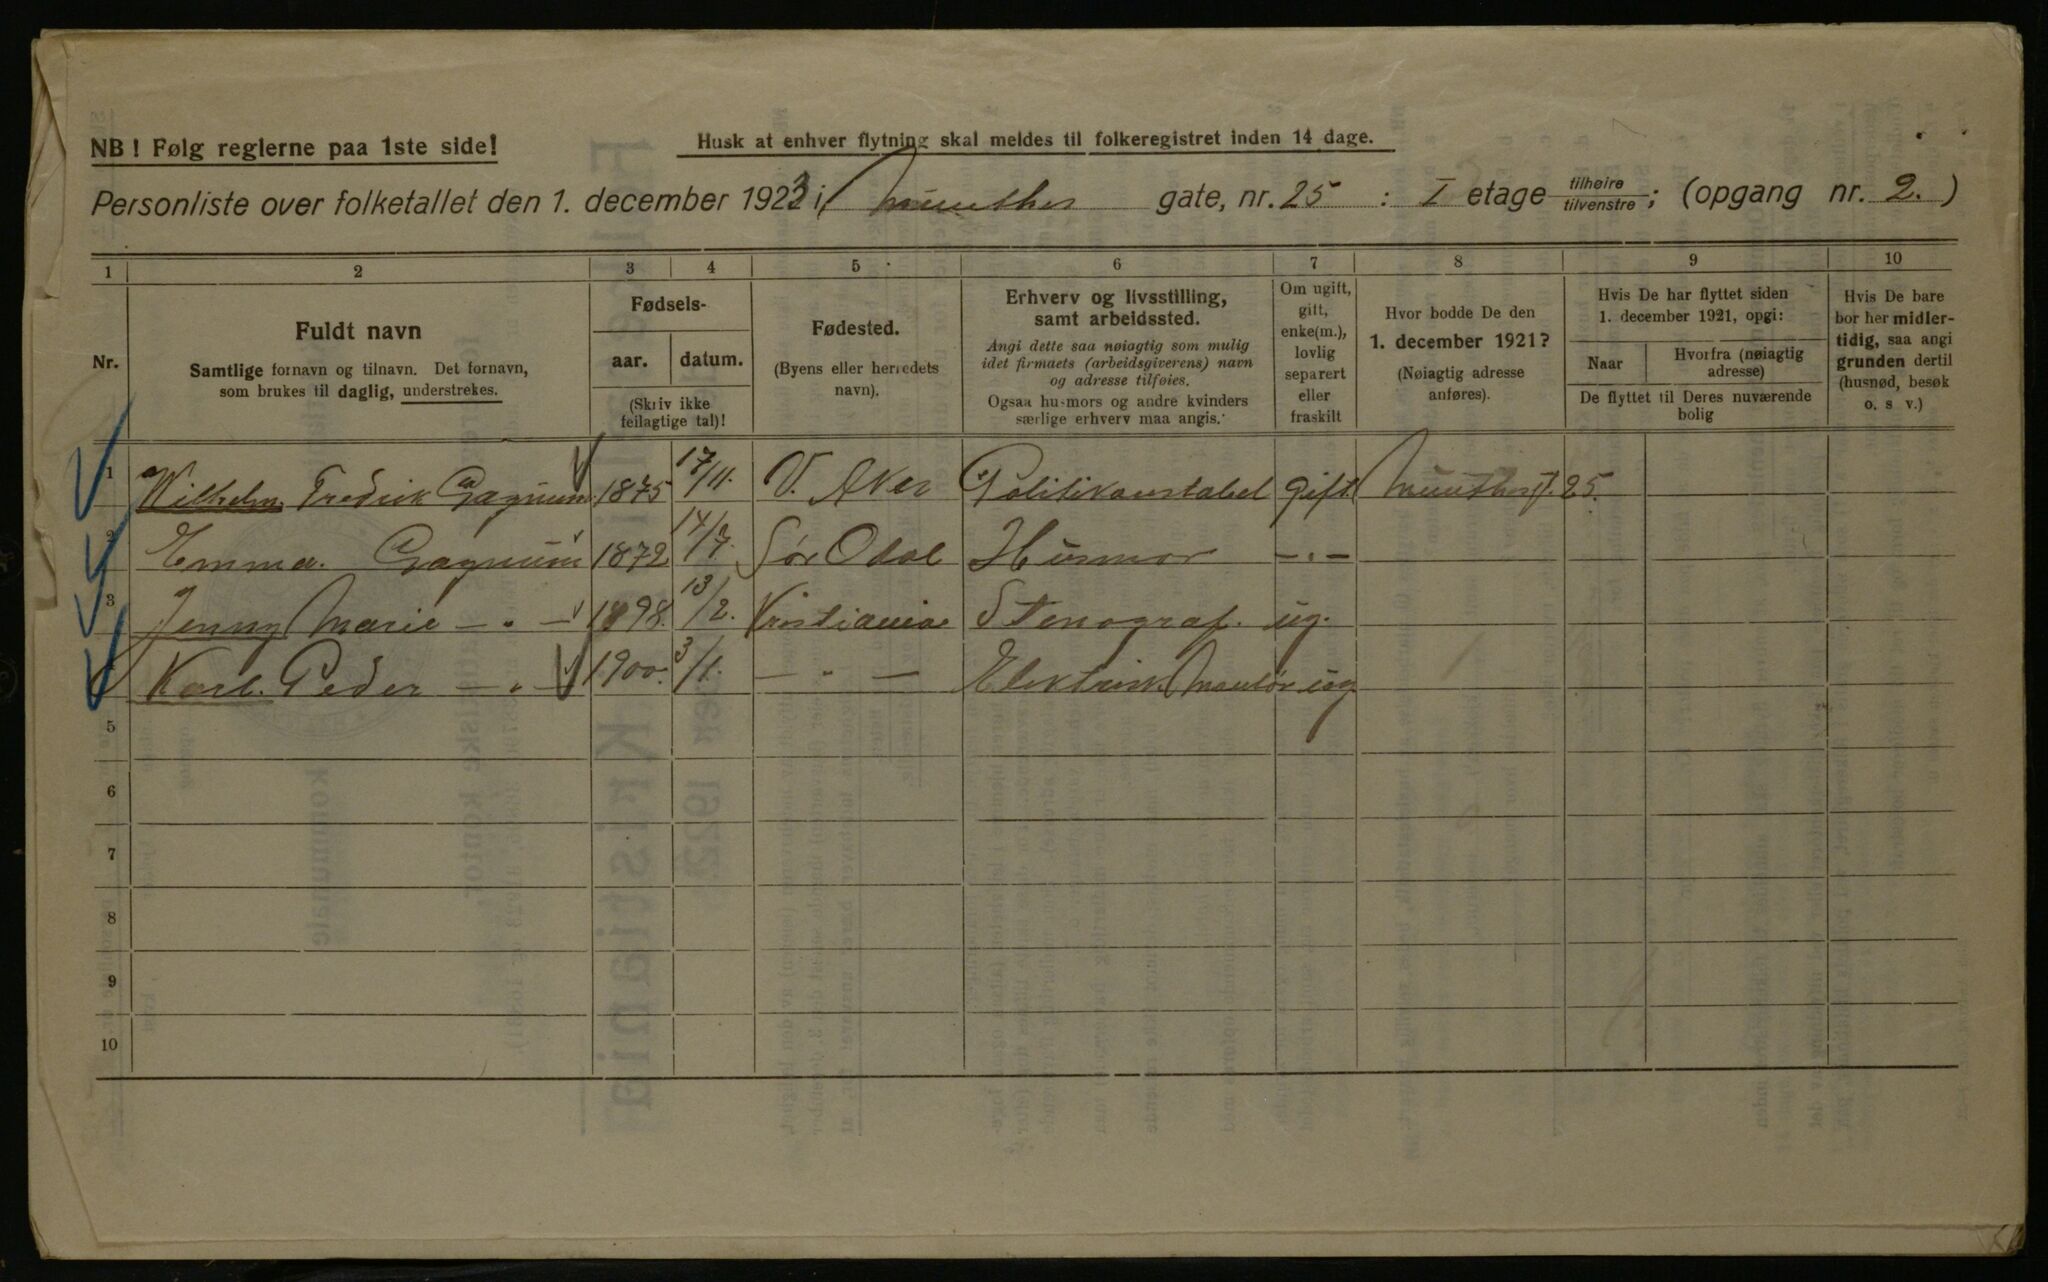 NB! Følg reglerne paa 1ste side!
Husk at enhver flytning skal meldes til folkeregistret inden 14 dage.
Personliste over folketallet den 1. december 1923 i Munthes gate, nr. 25 : I etage tilhøire/tilvenstre; (opgang nr. 2.)
1 2 3 4 5 6 7 8 9 10
Nr.
Fuldt navn
Samtlige fornavn og tilnavn. Det fornavn,
som brukes til daglig, understrekes.
Fødsels-
aar. datum.
(Skriv ikke
feilagtige tal)!
Fødested.
(Byens eller herredets
navn).
Erhverv og livsstilling,
samt arbeidssted.
Angi dette saa nøiagtig som mulig
idet firmaets (arbeidsgiverens) navn
og adresse tilføies.
Ogsaa husmors og andre kvinders
særlige erhverv maa angis.
Om ugift,
gift,
enke(m.),
lovlig
separert
eller
fraskilt
Hvor bodde De den
1. december 1921?
(Nøiagtig adresse
anføres).
Hvis De har flyttet siden
1. december 1921, opgi:
Naar
Hvorfra (nøiagtig
adresse)
De flyttet til Deres nuværende
bolig
Hvis De bare
bor her midler-
tidig, saa angi
grunden dertil
(husnød, besøk
o. s v.)
1 Wilhelm Fredrik Gagnum 1875 17/11. V. Aker Politikonstabel gift Munthesg. 25.
2 Emma Gagnum 1872 14/7. Sør Odal Husmor — " —
3 Jenny Marie — " — 1898. 13/2. Kristiania Stenograf. ug.
4 Karl Peder — " — 1900. 3/1. — " — Elektrisk Montør ug
5
6
7
8
9
10